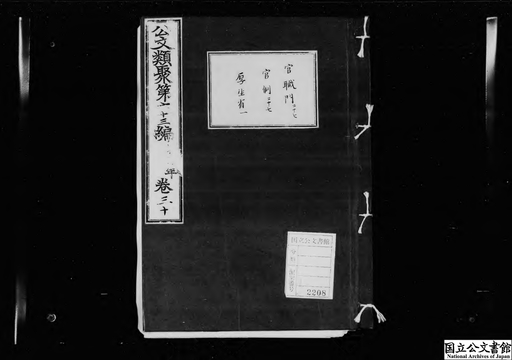 公文類聚第六十三編
年
卷三十
官職門二十七
官制二十七
厚生省一
国立公文書館
2208
国立公文書館
National Archives of Japan